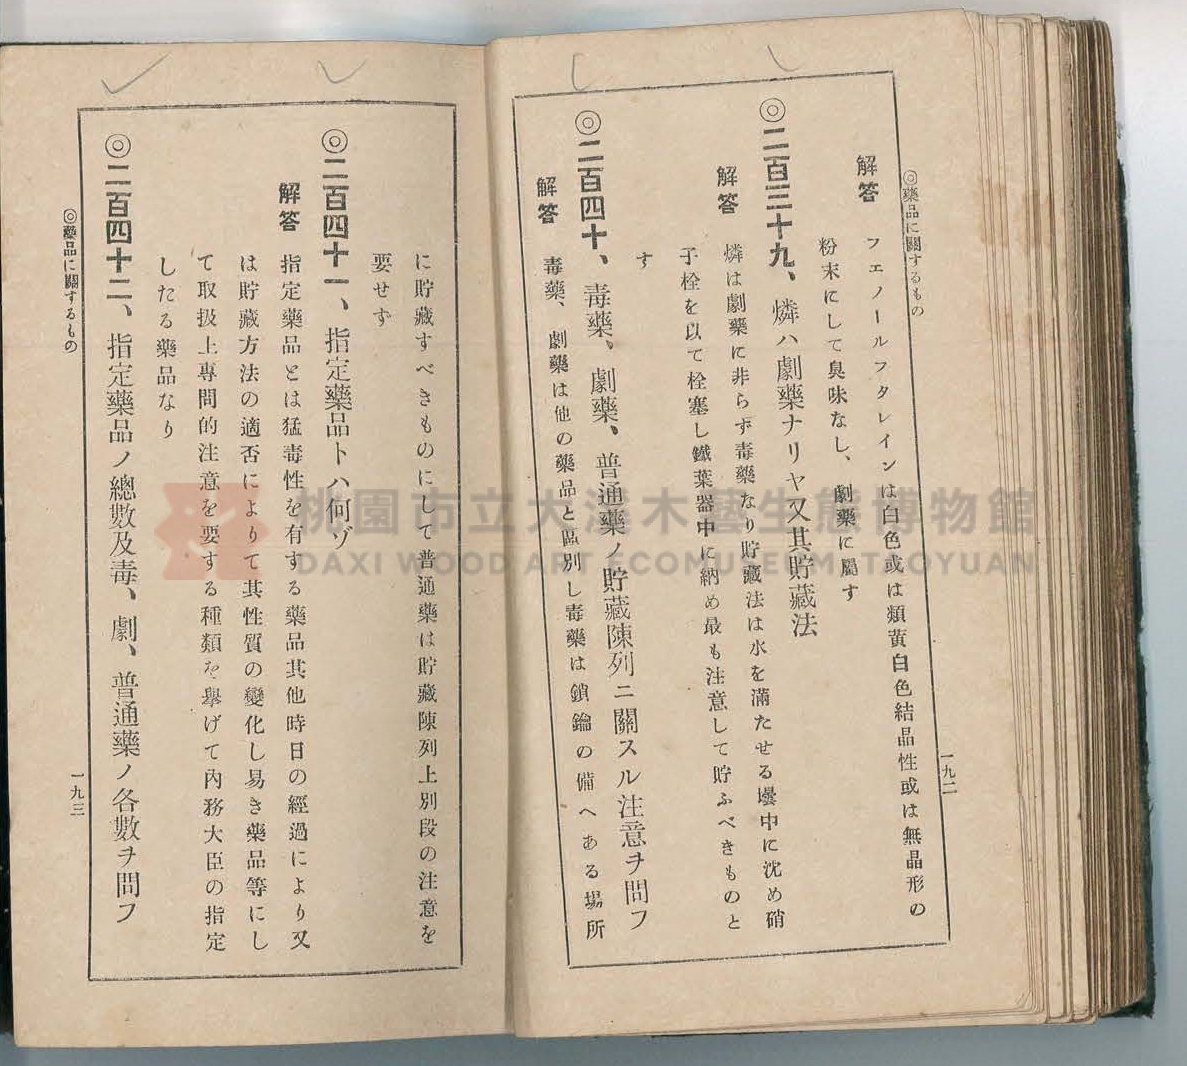 ◎藥品に關するもの
解答
フェノールフタレインは白色或は類黄白色結晶性或は無晶形の
粉末にして臭味なし、劇藥に屬す
◎二百三十九、燐ハ劇藥ナリヤ又其貯藏法
解答
燐は劇藥に非らず毒藥なり貯藏法は水を滿たせる壜中に沈め硝
子栓を以て栓塞し鐵葉器中に納め最も注意して貯ふべきものと
す
◎二百四十、毒藥、劇藥、普通藥ノ貯藏陳列ニ關スル注意ヲ問フ
解答
毒藥、劇藥は他の藥品と區別し毒藥は鎖鑰の備へある場所
一九二
に貯藏すべきものにして普通藥は貯藏陳列上別段の注意を
要せず
◎二百四十一、指定藥品トハ何ゾ
解答
指定藥品とは猛毒性を有する藥品其他時日の經過により又
は貯藏方法の適否によりて其性質の變化し易き藥品等にし
て取扱上專問的注意を要する種類を擧げて內務大臣の指定
したる藥品なり
◎二百四十二、指定藥品ノ總數及毒、劇、普通藥ノ各數ヲ問フ
◎藥品に關するもの
一九三
桃園市立大溪木藝生態博物館
DAXI WOOD ART ECOMUSEUM, TAOYUAN